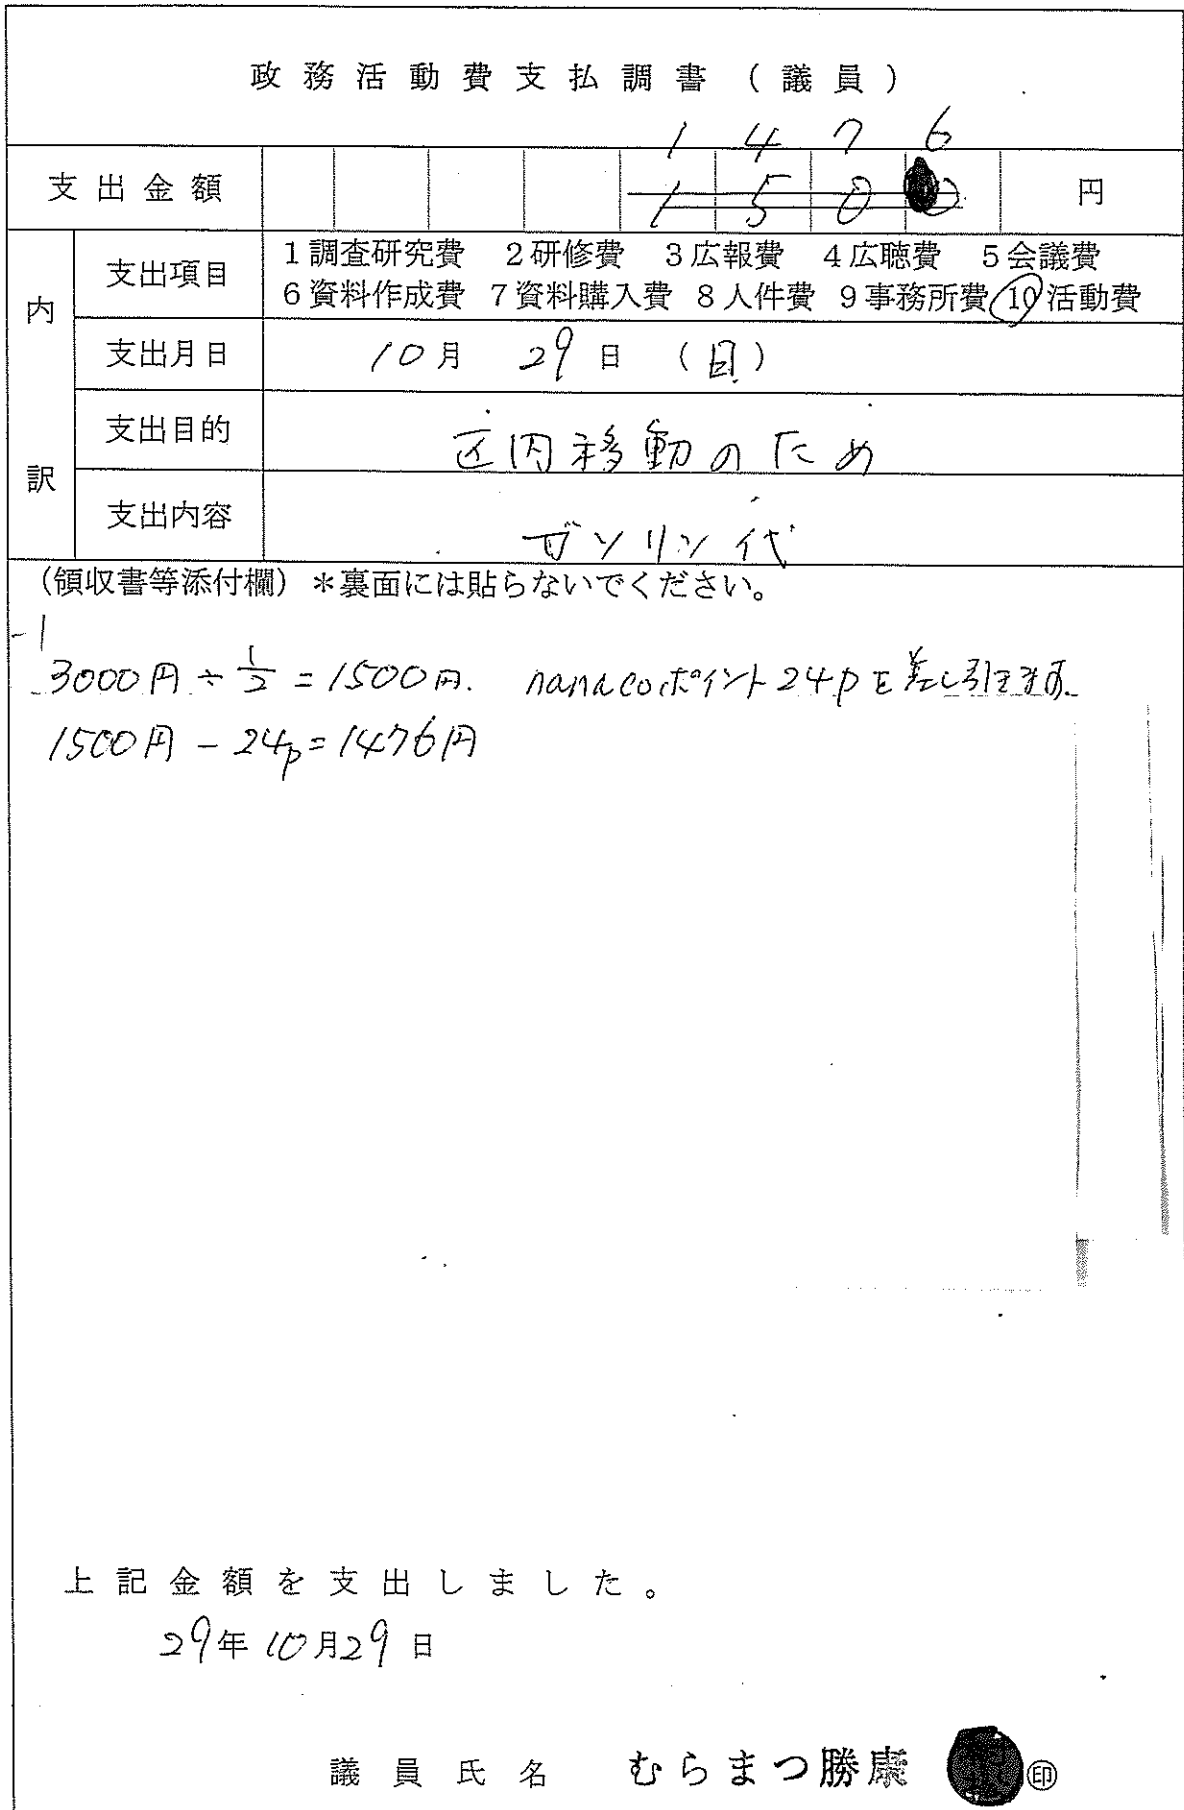 政務活動費支払調書（議員）
1 4 7 6
支出金額 1 5 0 0 円
内訳
支出項目 1調査研究費 2研修費 3広報費 4広聴費 5会議費
6資料作成費 7資料購入費 8人件費 9事務所費 10活動費
支出月日 10月 29日 （日）
支出目的 区内移動のため
支出内容 ガソリン代
（領収書等添付欄）＊裏面には貼らないでください。
-1
3000円÷1/2=1500円. nanacoポイント24pを差し引きます。
1500円-24p=1476円
上記金額を支出しました。
29年10月29日
議員氏名 むらまつ勝康 ㊞